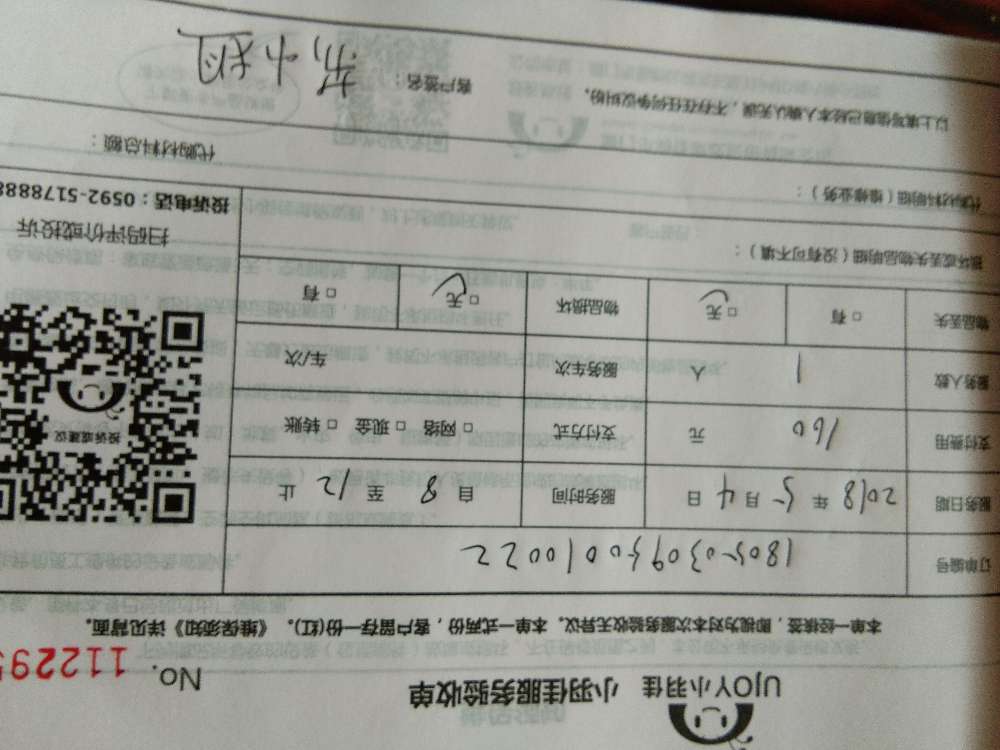 UJOY小羽佳 小羽佳服务验收单
No. 112295
本单一经核签，即视为对本次服务验收无异议。本单一式两份，客户留存一份(红)。《维保须知》详见背面。
订单编号 1805030950010022
服务日期 2018 年 5 月 4 日 服务时间 自 8 至 12 止
支付费用 160 元 支付方式 □ 网络 □ 现金 □ 转账
服务人数 1 人 服务车次 车/次
物品丢失 □ 有 □ 无 物品损坏 □ 无 □ 有
投诉或建议
扫码评价或投诉
投诉电话：0592-5178888
损坏或丢失物品明细（没有可不填）：
代购材料明细（维修业务）：
代购材料总额：
以上填写信息已经本人确认无误，不存在任何争议纠纷。 客户签名：